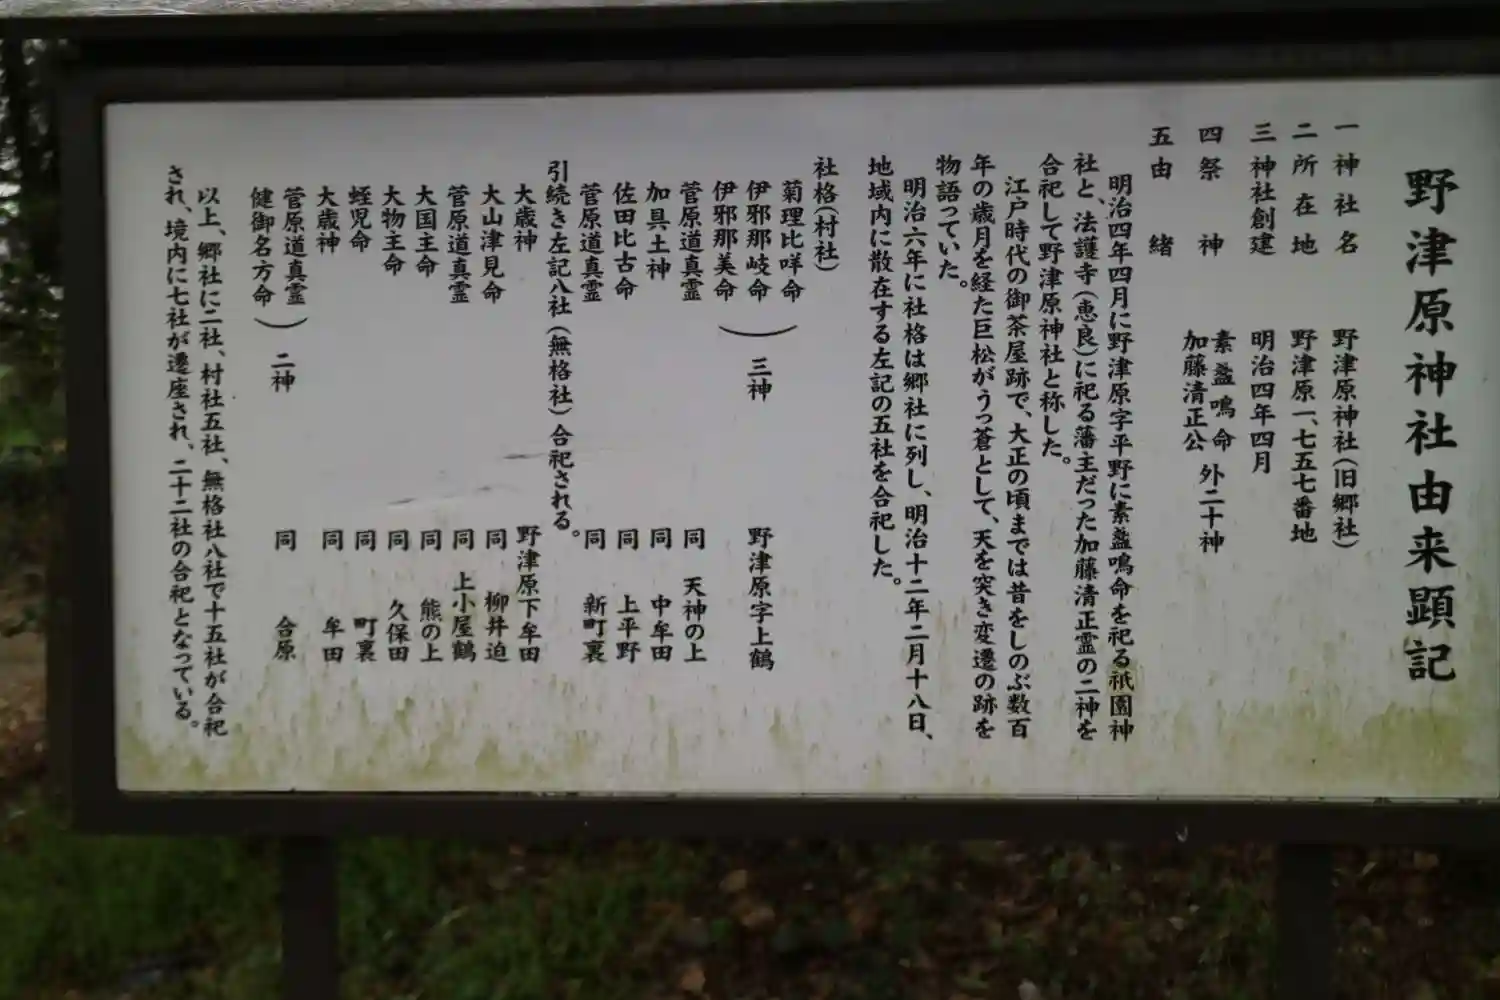 野津原神社由来顕記
一 神社名 野津原神社(旧郷社)
二 所在地 野津原一、七五七番地
三 神社創建 明治四年四月
四 祭神 素盞鳴命 外二十神
加藤清正公
五 由緒
明治四年四月に野津原字平野に素盞鳴命を祀る祇園神
社と、法護寺(恵良)に祀る藩主だった加藤清正霊の二神を
合祀して野津原神社と称した。
江戸時代の御茶屋跡で、大正の頃までは昔をしのぶ数百
年の歳月を経た巨松がうっ蒼として、天を突き変遷の跡を
物語っていた。
明治六年に社格は郷社に列し、明治十二年二月十八日、
地域内に散在する左記の五社を合祀した。
社格(村社)
菊理比咩命
伊邪那岐命 三神 野津原字上鶴
伊邪那美命
菅原道真霊 同 天神の上
加具土神 同 中牟田
佐田比古命 同 上平野
菅原道真霊 同 新町裏
引続き左記八社(無格社)合祀される。
大歳神 野津原下牟田
大山津見命 同 柳井迫
菅原道真霊 同 上小屋鶴
大国主命 同 熊の上
大物主命 同 久保田
蛭児命 同 町裏
大歳神 同 牟田
菅原道真霊 二神 同 合原
健御名方命
以上、郷社に二社、村社五社、無格社八社で十五社が合祀
され、境内に七社が遷座され、二十二社の合祀となっている。